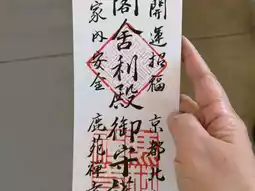 開運招福
京都北
閣舎利殿御守護
家内安全
鹿苑禅寺